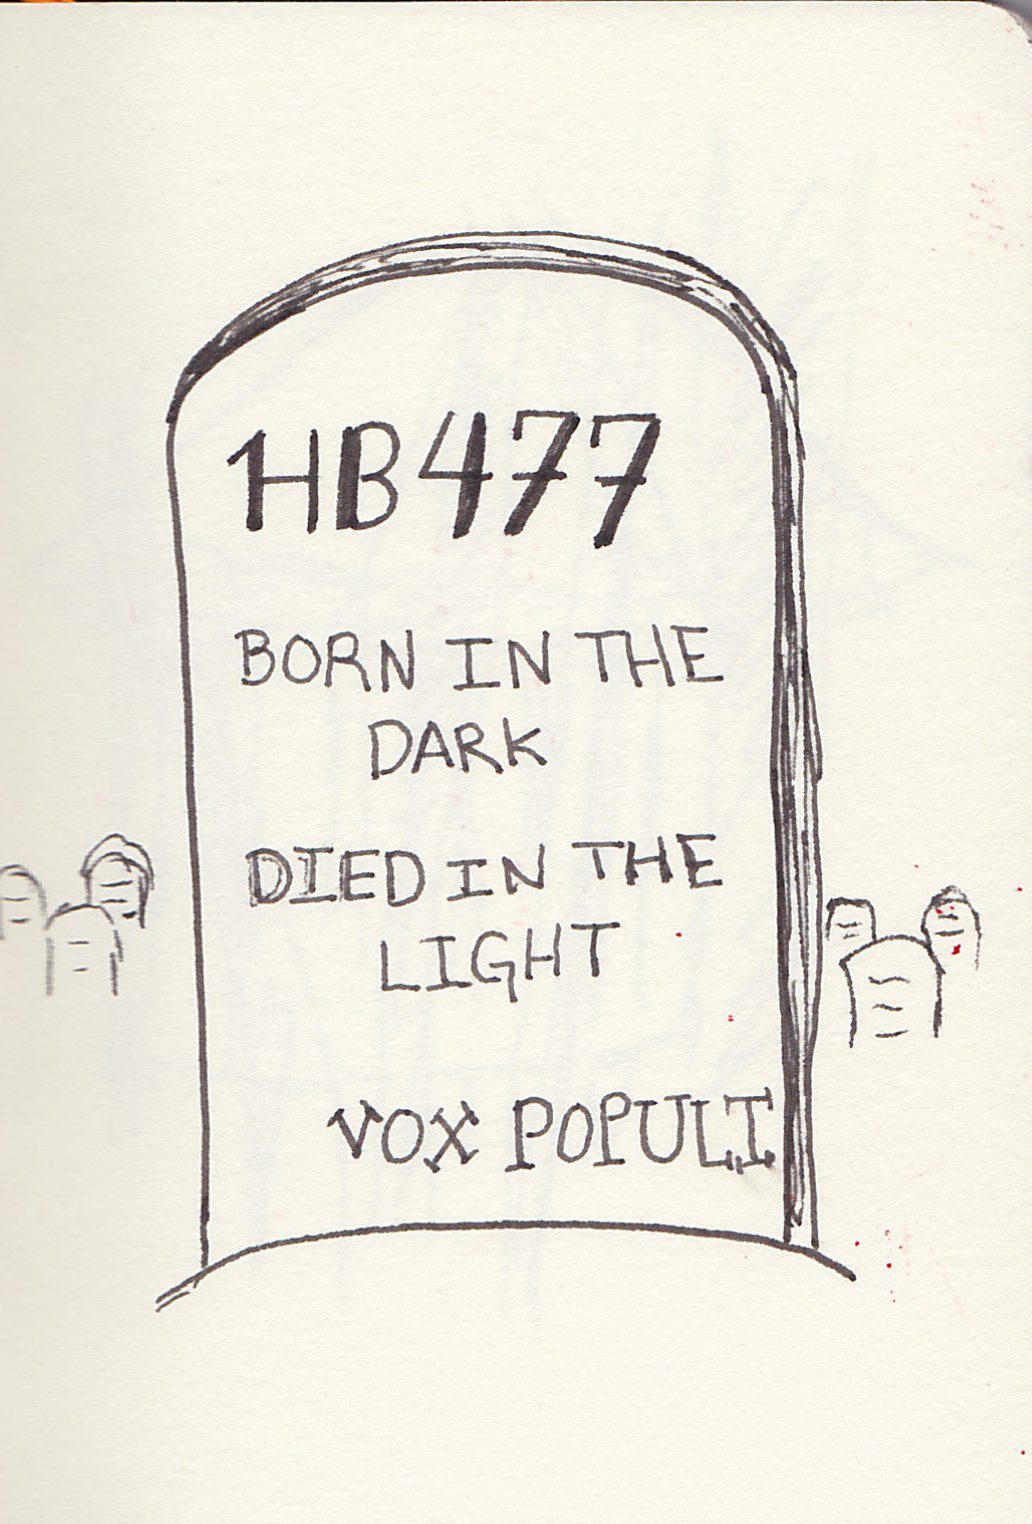 HB477
BORN IN THE
DARK
DIED IN THE
LIGHT
VOX POPULI